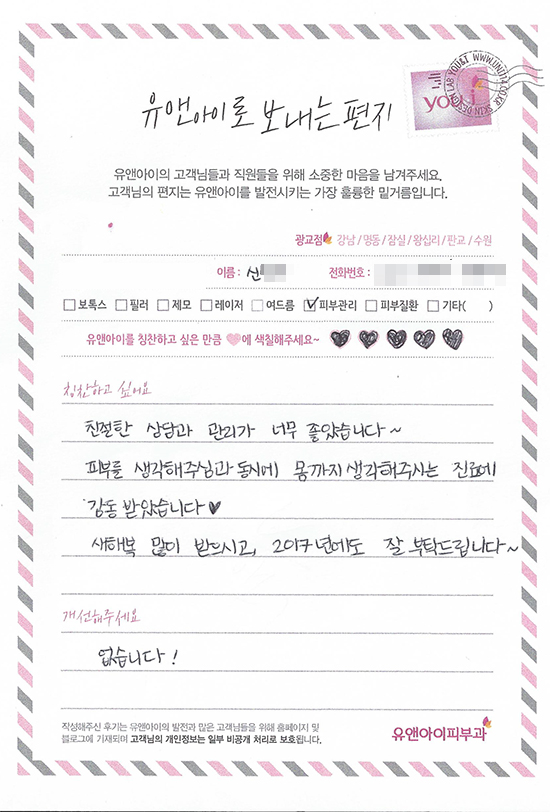 유앤아이로 보내는 편지
you&i
LAB YOU&I WWW.UNI114.CO.KR SKIN DESIGN
유앤아이의 고객님들과 직원들을 위해 소중한 마음을 남겨주세요.
고객님의 편지는 유앤아이를 발전시키는 가장 훌륭한 밑거름입니다.
광교점 강남 / 명동 / 잠실 / 왕십리 / 판교 / 수원
이름 : 신 전화번호 :
보톡스 필러 제모 레이저 여드름 피부관리 피부질환 기타( )
유앤아이를 칭찬하고 싶은 만큼 에 색칠해주세요~
칭찬하고 싶어요
친절한 상담과 관리가 너무 좋았습니다~
피부를 생각해주심과 동시에 몸까지 생각해주시는 진료에
감동 받았습니다♥
새해복 많이 받으시고, 2017년에도 잘 부탁드립니다~
개선해주세요
없습니다!
작성해주신 후기는 유앤아이의 발전과 많은 고객님들을 위해 홈페이지 및
블로그에 기재되며 고객님의 개인정보는 일부 비공개 처리로 보호됩니다.
유앤아이피부과